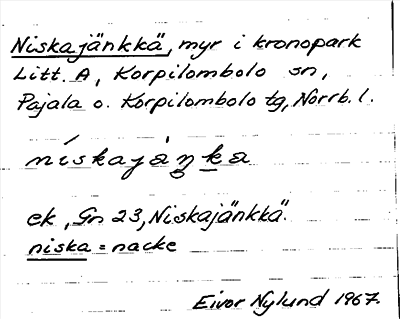 Niskajänkkä, myr i kronopark
Litt. A, Korpilombolo sn,
Pajala o. Korpilombolo tg, Norrb. l.
ek, Gn 23, Niskajänkkä.
niska = nacke
Eivor Nylund 1967.